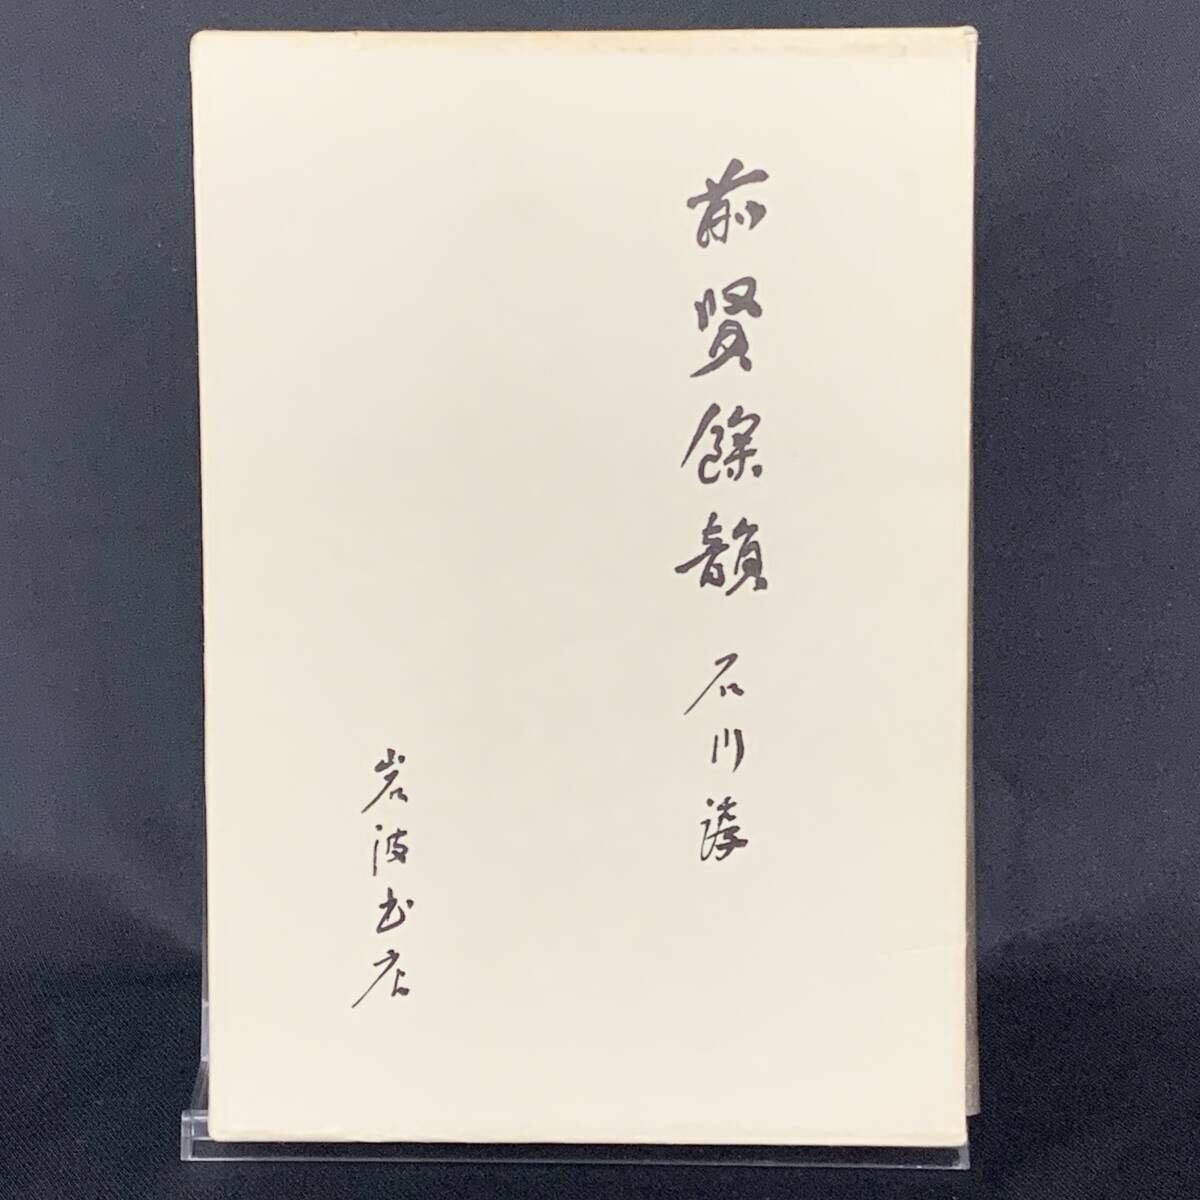 前賢餘韻 石川謙
岩波書店